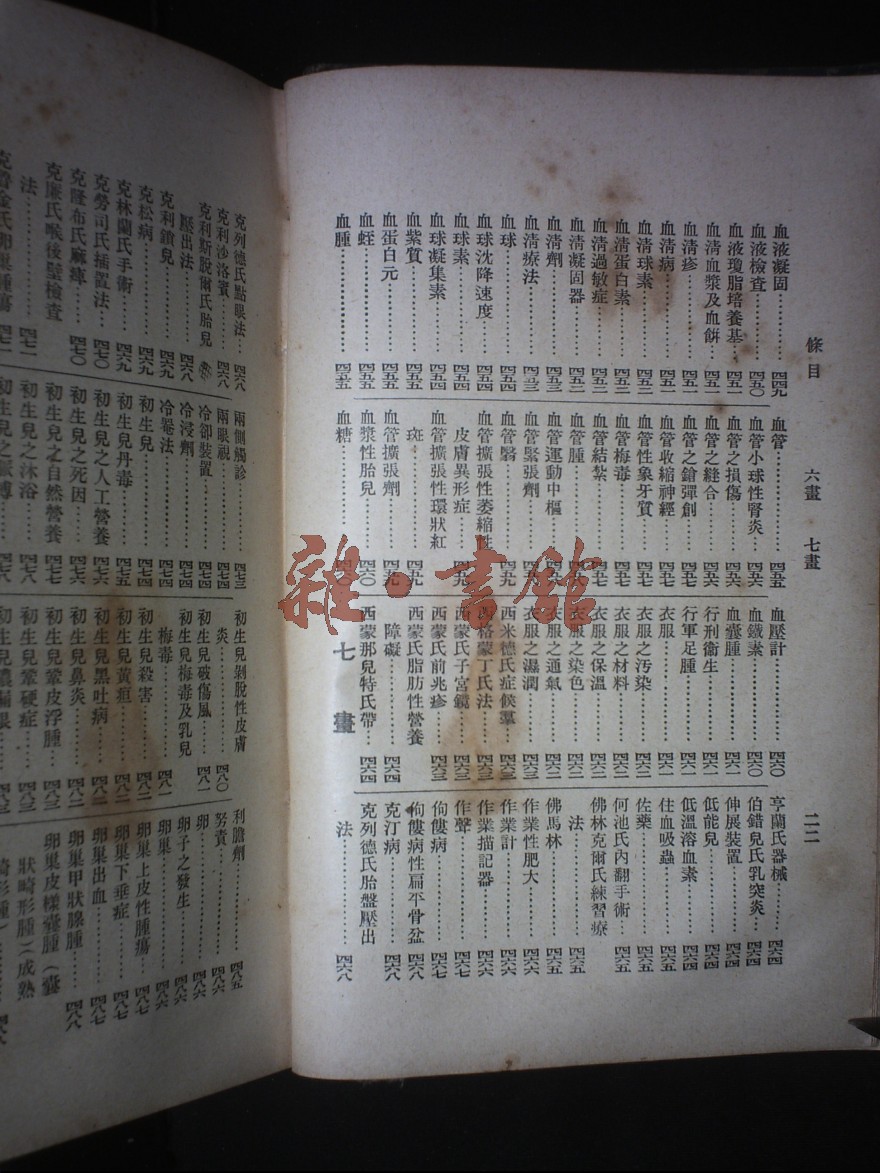 條目
六畫 七畫
二二
血液凝固………四四九
血液檢查………四五〇
血液瓊脂培養基…四五一
血清血漿及血餅…四五一
血清疹………四五一
血清病………四五一
血清球素………四五二
血清蛋白素………四五二
血清過敏症………四五二
血清凝固器………四五二
血清劑………四五三
血清療法………四五三
血球………四五四
血球沈降速度………四五四
血球素………四五四
血球凝集素………四五四
血紫質………四五五
血蛋白元………四五五
血蛭………四五五
血腫………四五五
血管………四五五
血管小球性腎炎…四五六
血管之損傷………四五六
血管之縫合………四五六
血管之鎗彈創………四五七
血管收縮神經………四五七
血管性象牙質………四五七
血管梅毒………四五七
血管結紮………四五七
血管腫………四五八
血管運動中樞………四五八
血管緊張劑………四五八
血管翳………四五九
血管擴張性萎縮性
皮膚異形症………四五九
血管擴張性環狀紅
斑………四五九
血管擴張劑………四五九
血漿性胎兒………四六〇
血糖………四六〇
血壓計………四六〇
血鐵素………四六〇
血囊腫………四六一
行刑衞生………四六一
行軍足腫………四六一
衣服………四六一
衣服之汚染………四六二
衣服之材料………四六二
衣服之保溫………四六二
衣服之染色………四六二
衣服之通氣………四六二
衣服之濕潤………四六三
西米德氏症候羣…四六三
西格蒙丁氏法………四六三
西蒙氏子宮鏡………四六三
西蒙氏前兆疹………四六三
西蒙氏脂肪性營養
障礙………四六四
西蒙那兒特氏帶…四六四
七畫
亨蘭氏器械………四六四
伯錯兒氏乳突炎…四六四
伸展裝置………四六四
低能兒………四六四
低溫溶血素………四六四
住血吸蟲………四六五
佐藥………四六五
何池氏內翻手術…四六五
佛林克爾氏練習療
法………四六五
佛馬林………四六六
作業性肥大………四六六
作業計………四六六
作業描記器………四六七
作聲………四六七
佝僂病………四六八
佝僂病性扁平骨盆…四六八
克汀病………四六八
克列德氏胎盤壓出
法………四六八
克列德氏點眼法…四六八
克利沙洛賓………四六八
克利斯脫爾氏胎兒
壓出法………四六八
克利鎮兒………四六九
克松病………四六九
克林蘭氏手術………四六九
克勞司氏插置法…四七〇
克隆布氏麻痺………四七〇
克廉氏喉後壁檢查
法………四七一
兩側觸診………四七三
兩眼視………四七四
冷卻裝置………四七四
冷浸劑………四七四
冷罨法………四七四
初生兒………四七四
初生兒丹毒………四七五
初生兒之人工營養…四七六
初生兒之死因………四七六
初生兒之自然營養…四七七
初生兒之沐浴………四七八
初生兒剝脫性皮膚
炎………四八〇
初生兒破傷風………四八一
初生兒梅毒及乳兒
梅毒………四八一
初生兒殺害………四八二
初生兒黃疸………四八二
初生兒黑吐病………四八二
初生兒鼻炎………四八二
初生兒鞏皮浮腫…四八三
初生兒鞏硬症………四八三
利膽劑………四八五
努責………四八六
卵………四八六
卵子之發生………四八六
卵巢………四八六
卵巢上皮性腫瘍…四八七
卵巢下垂症………四八七
卵巢出血………四八七
卵巢甲狀腺腫………四八八
卵巢皮樣囊腫(囊
狀畸形腫)(成熟
畸形腫)
雜·書館